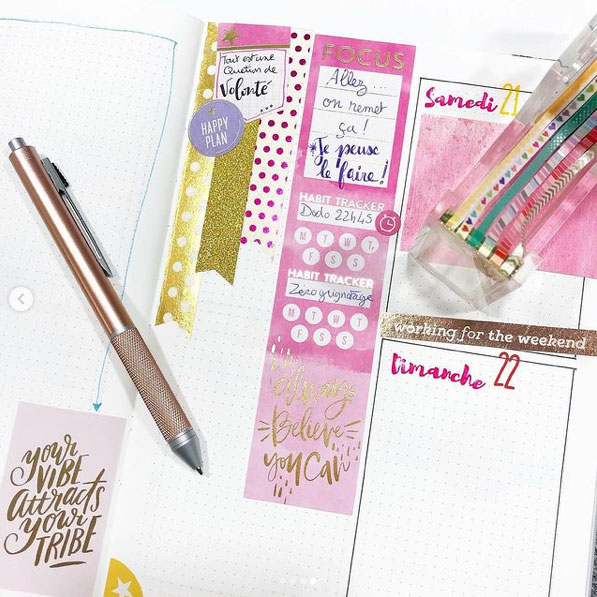 Tout est une
Question de
Volonté
HAPPY
PLAN
FOCUS
Allez...
on remet
ça !
Je peuse
le faire !
HABIT TRACKER
Dodo 22h45
M T W T
F S S
HABIT TRACKER
Zéro grignotage
M T W T
F S S
Always
Believe
you Can
Samedi 21
working for the weekend
Dimanche 22
your
VIBE
attracts
your
TRIBE